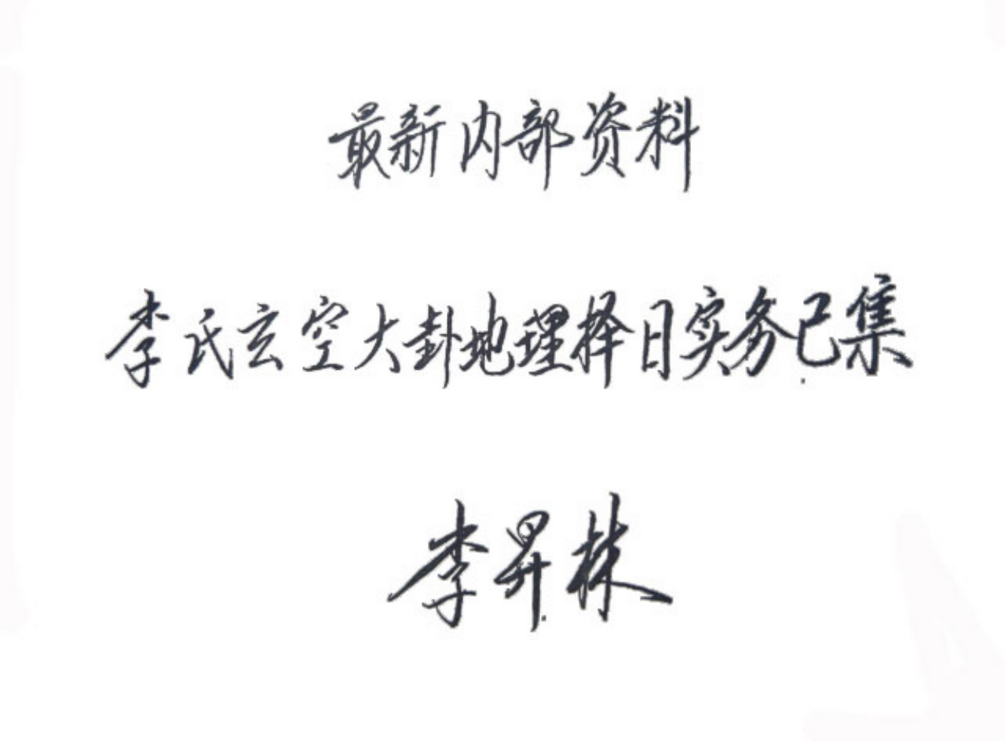 最新内部资料
李氏玄空大卦地理择日实务己集
李昇林